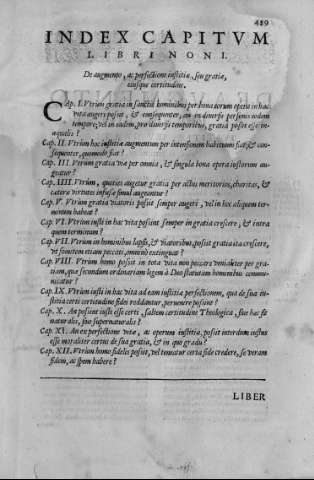 459
INDEX CAPITVM
LIBRI NONI.
De augmento, ac perfectione iustitiæ, seu gratiæ,
eiusque certitudine.
Cap. I. Vtrum gratia in sanctis hominibus per bona eorum opera in hac
vita augeri possit, & consequenter, an in diuersis personis eodem
tempore, vel in eadem, pro diuersis temporibus, gratia possit esse in-
æqualis?
Cap. II. Vtrum hoc iustitiæ augmentum per intensionem habituum fiat, &
consequenter, quomodo fiat?
Cap. III. Vtrum gratia viæ per omnia, & singula bona opera iustorum au-
geatur?
Cap. IIII. Vtrum, quoties augetur gratia per actus meritorios, charitas, &
cæteræ virtutes infusæ simul augeantur?
Cap. V. Vtrum gratia viatoris possit semper augeri, vel in hoc aliquem ter-
minum habeat?
Cap. VI. Vtrum iusti in hac vita possint semper in gratia crescere, & intra
quem terminum?
Cap. VII. Vtrum in hominibus lapsis, & viatoribus, possit gratia ita crescere,
vt fomitem etiam peccati, omnino extinguat?
Cap. VIII. Vtrum homo possit in tota vita non peccare venialiter per gra-
tiam, quæ secundum ordinariam legem à Deo statutam hominibus commu-
nicatur?
Cap. IX. Vtrum iusti in hac vita ad eam iustitiæ perfectionem, qua de sua iu-
stitia certi certitudine fidei reddantur, peruenire possint?
Cap. X. An possint iusti esse certi, saltem certitudine Theologica, siue hæc sit
naturalis, siue supernaturalis?
Cap. XI. An ex perfectione vitæ, ac operum iustitiæ, possit interdum iustus
esse moraliter certus de sua gratia, & in quo gradu?
Cap. XII. Vtrum homo fidelis possit, vel teneatur certa fide credere, se veram
fidem, ac spem habere?
LIBER